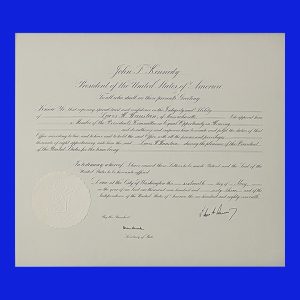 John F. Kennedy
President of the United States of America
To all who shall see these presents, Greeting:
Know Ye, that reposing special trust and confidence in the Integrity and Ability
of Louis H. of Massachusetts I do appoint him
Member of the President's Committee on Equal Opportunity in Housing
and do authorize and empower him to execute and fulfil the duties of that
Office according to law and to have and to hold the said Office, with all the powers and privileges
thereunto of right appertaining unto him the said Louis H. during the pleasure of the President
of the United States for the time being.
In testimony whereof, I have caused these Letters to be made Patent and the Seal of the
United States to be hereunto affixed.
Done at the City of Washington this day of May
in the year of our Lord one thousand nine hundred and sixty-three and of the
Independence of the United States of America the one hundred and eighty-seventh.
By the President:
Secretary of State.